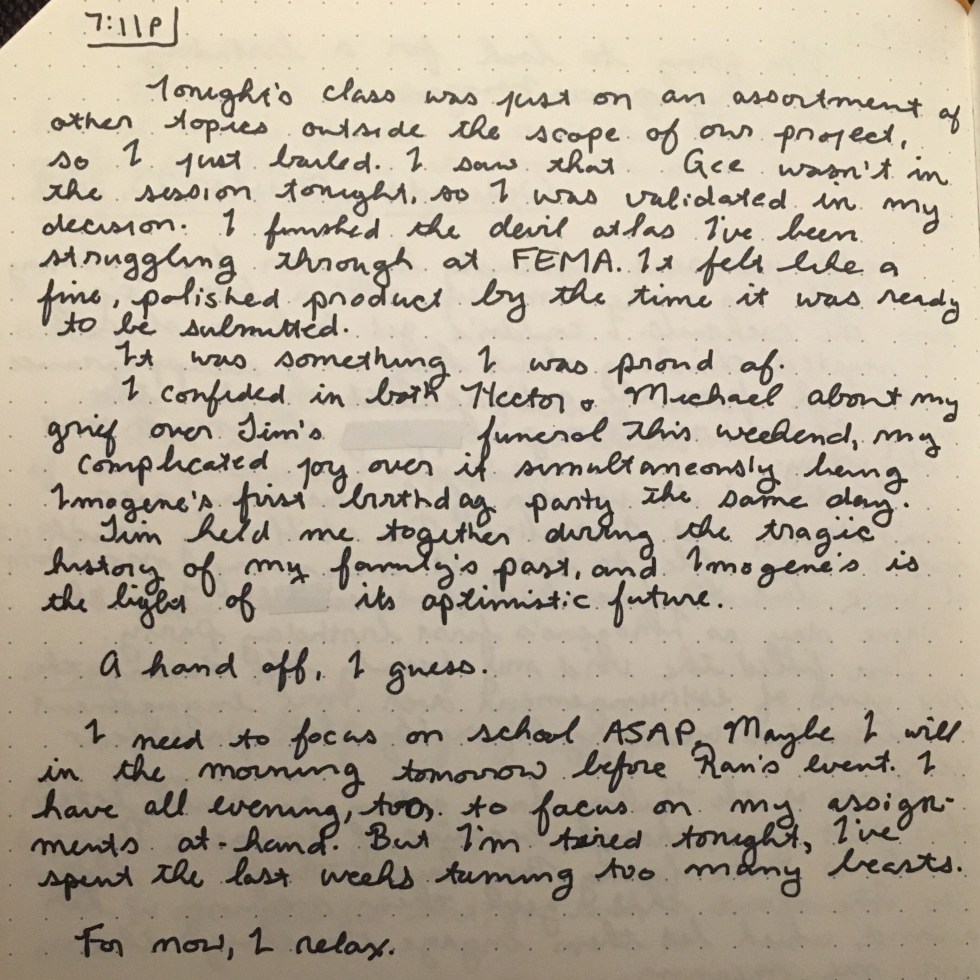 7:11P
Tonight's class was just on an assortment of
other topics outside the scope of our project,
so I just bailed. I saw that Gee wasn't in
the session tonight, so I was validated in my
decision. I finished the devil atlas I've been
struggling through at FEMA. It felt like a
fine, polished product by the time it was ready
to be submitted.
It was something I was proud of.
I confided in both Hector & Michael about my
grief over Tim's funeral this weekend, my
complicated joy over it simultaneously being
Imogene's first birthday party the same day.
Tim held me together during the tragic
history of my family's past, and Imogene's is
the light of its optimistic future.
A hand off, I guess.
I need to focus on school ASAP. Maybe I will
in the morning tomorrow before Ran's event. I
have all evening, too, to focus on my assign-
ments at-hand. But I'm tired tonight, I've
spent the last weeks taming too many beasts.
For now, I relax.